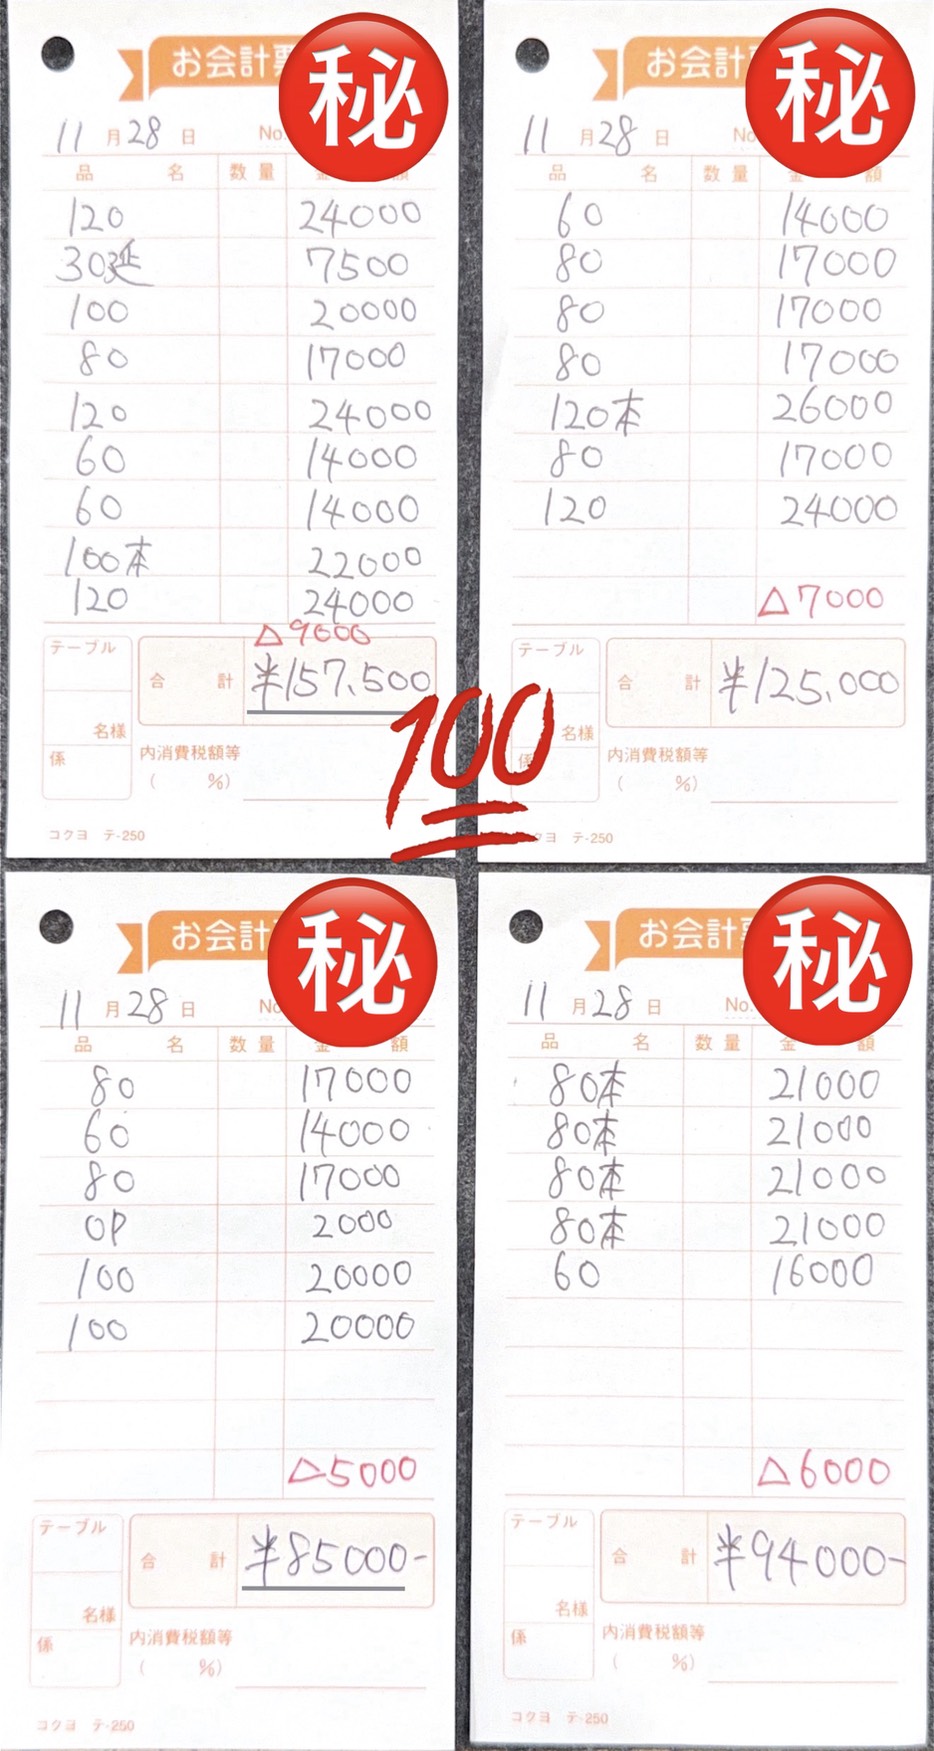 お会計票
㊙
11月28日 No.
品名 数量 金額
120 24000
30延 7500
100 20000
80 17000
120 24000
60 14000
60 14000
100本 22000
120 24000
△9000
テーブル
合計 ¥157,500
名様
係
内消費税額等
( %)
コクヨ テ-250
お会計票
㊙
11月28日 No.
品名 数量 金額
60 14000
80 17000
80 17000
80 17000
120本 26000
80 17000
120 24000
△7000
テーブル
合計 ¥125,000
名様
係
内消費税額等
( %)
コクヨ テ-250
100
お会計
㊙
11月28日 No.
品名 数量 金額
80 17000
60 14000
80 17000
OP 2000
100 20000
100 20000
△5000
テーブル
合計 ¥85000-
名様
係
内消費税額等
( %)
コクヨ テ-250
お会計票
㊙
11月28日 No.
品名 数量 金額
80本 21000
80本 21000
80本 21000
80本 21000
60 16000
△6000
テーブル
合計 ¥94000-
名様
係
内消費税額等
( %)
コクヨ テ-250